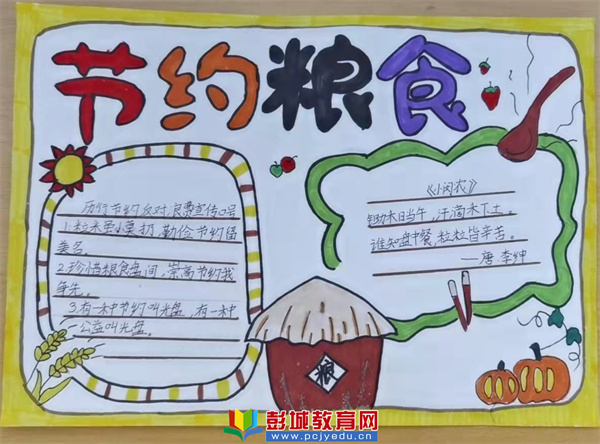 节约粮食
历行节约反对浪费宣传口号
1.粒米虽小莫扔,勤俭节约留
美名
2.珍惜粮食盘间,崇高节约我
争先。
3.有一种节约叫光盘,有一种
公益叫光盘。
《小闵农》
锄禾日当午,汗滴禾下土。
谁知盘中餐,粒粒皆辛苦。
——唐 李绅
粮
彭城教育网
www.pcjyedu.cn